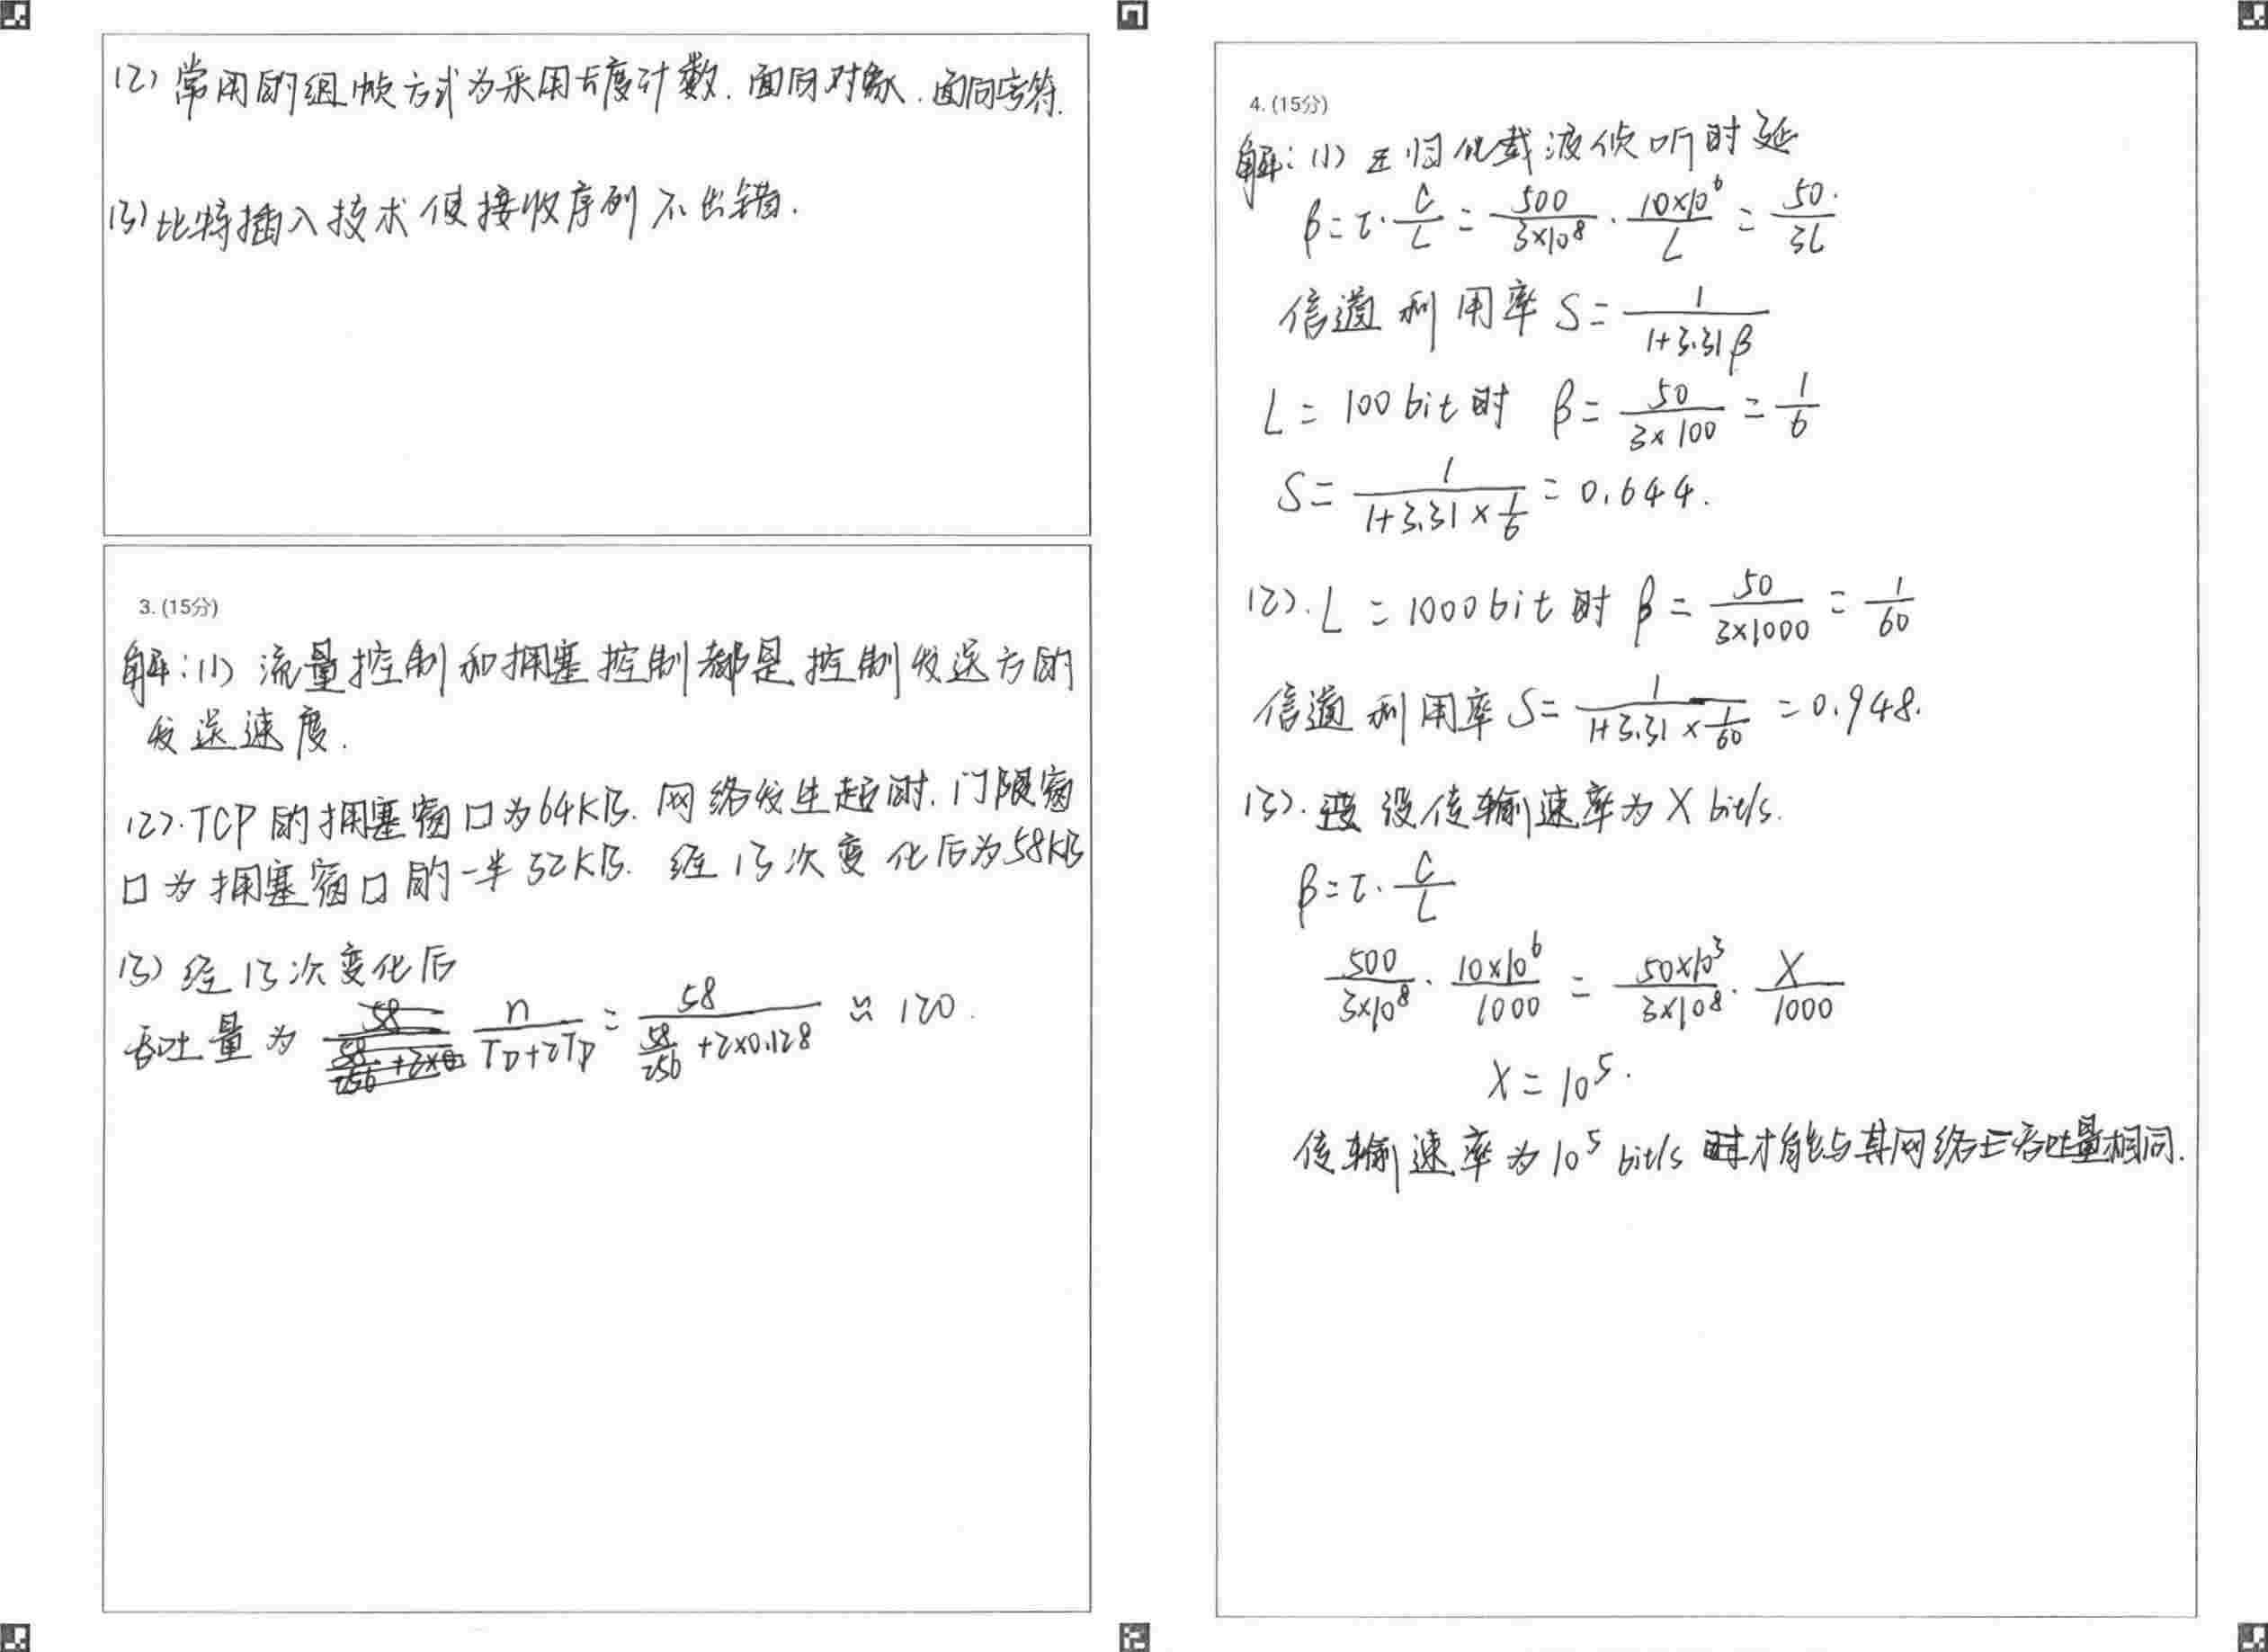 (2) 常用的组帧方式为采用长度计数. 面向对象. 面向字符.
(3) 比特插入技术使接收序列不出错.
3. (15分)
解: (1) 流量控制和拥塞控制都是控制发送方的
发送速度.
(2). TCP的拥塞窗口为64KB. 网络发生超时. 门限窗
口为拥塞窗口的一半32KB. 经13次变化后为58KB
(3) 经13次变化后
吞吐量为 n/(TD+2TP) = 58/(58/256 + 2×0.128) ≈ 120.
4. (15分)
解: (1) 归一化载波侦听时延
β = τ· C/L = 500/(3×10⁸) · (10×10⁶)/L = 50/3L
信道利用率 S = 1/(1+3.31β)
L = 100 bit时 β = 50/(3×100) = 1/6
S = 1/(1+3.31×1/6) = 0.644.
(2). L = 1000bit时 β = 50/(3×1000) = 1/60
信道利用率 S = 1/(1+3.31×1/60) = 0.948.
(3). 设传输速率为X bit/s.
β = τ· C/L
500/(3×10⁸) · (10×10⁶)/1000 = (50×10³)/(3×10⁸) · X/1000
X = 10⁵.
传输速率为10⁵ bit/s 时才能与其网络吞吐量相同.